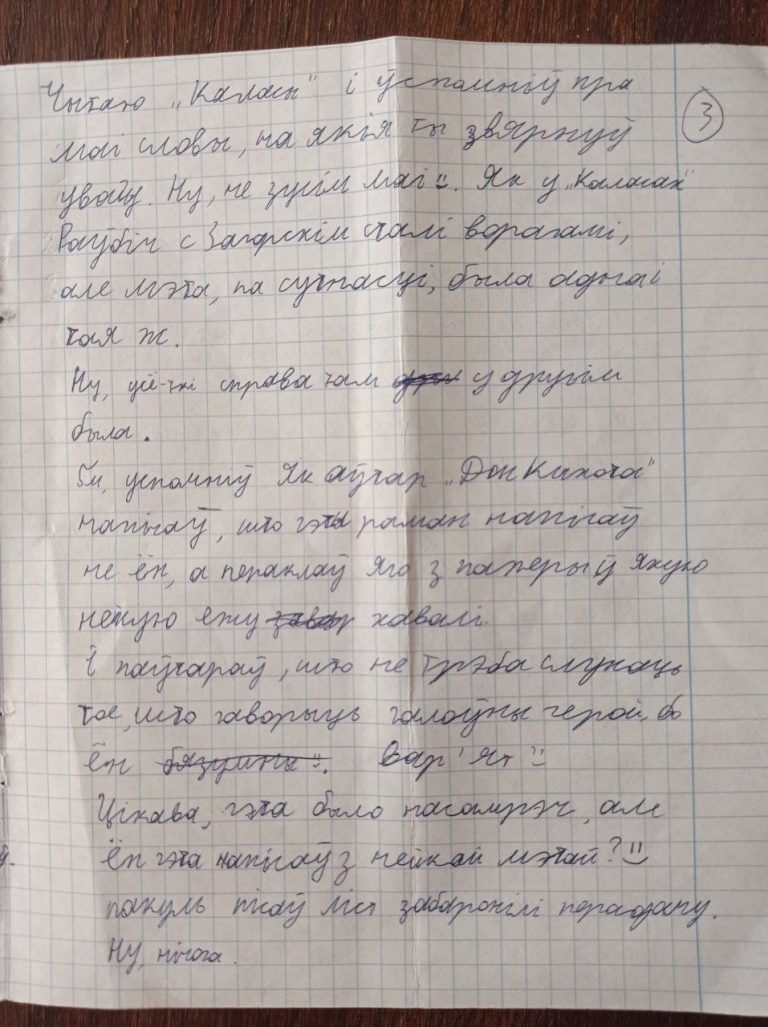 Чытаю „Каласы" і ўспомніў пра
3
маі словы, на якія ты звярнуў
увагу. Ну, не зусім маі. Як у „Каласах"
Раўбіч с Загорскім сталі ворагамі,
але мэта, па сутнасці, была адна і
тая ж.
Ну, усё-ткі справа там у другім
была.
успомніў як аўтар „Дон Кіхота"
напісаў, што гэты раман напісаў
не ён, а пераклаў яго з паперы ў якую
нейкую ежу хавалі.
І паўтараў, што не трэба слухаць
тое, што гаворыць галоўны герой, бо
ён бязумны. Вар'ят
Цікава, гэта было насамрэч, але
ён гэта напісаў з нейкай мэтай?
пакуль пісаў ліст забаранілі перадачу.
Ну, нічога.